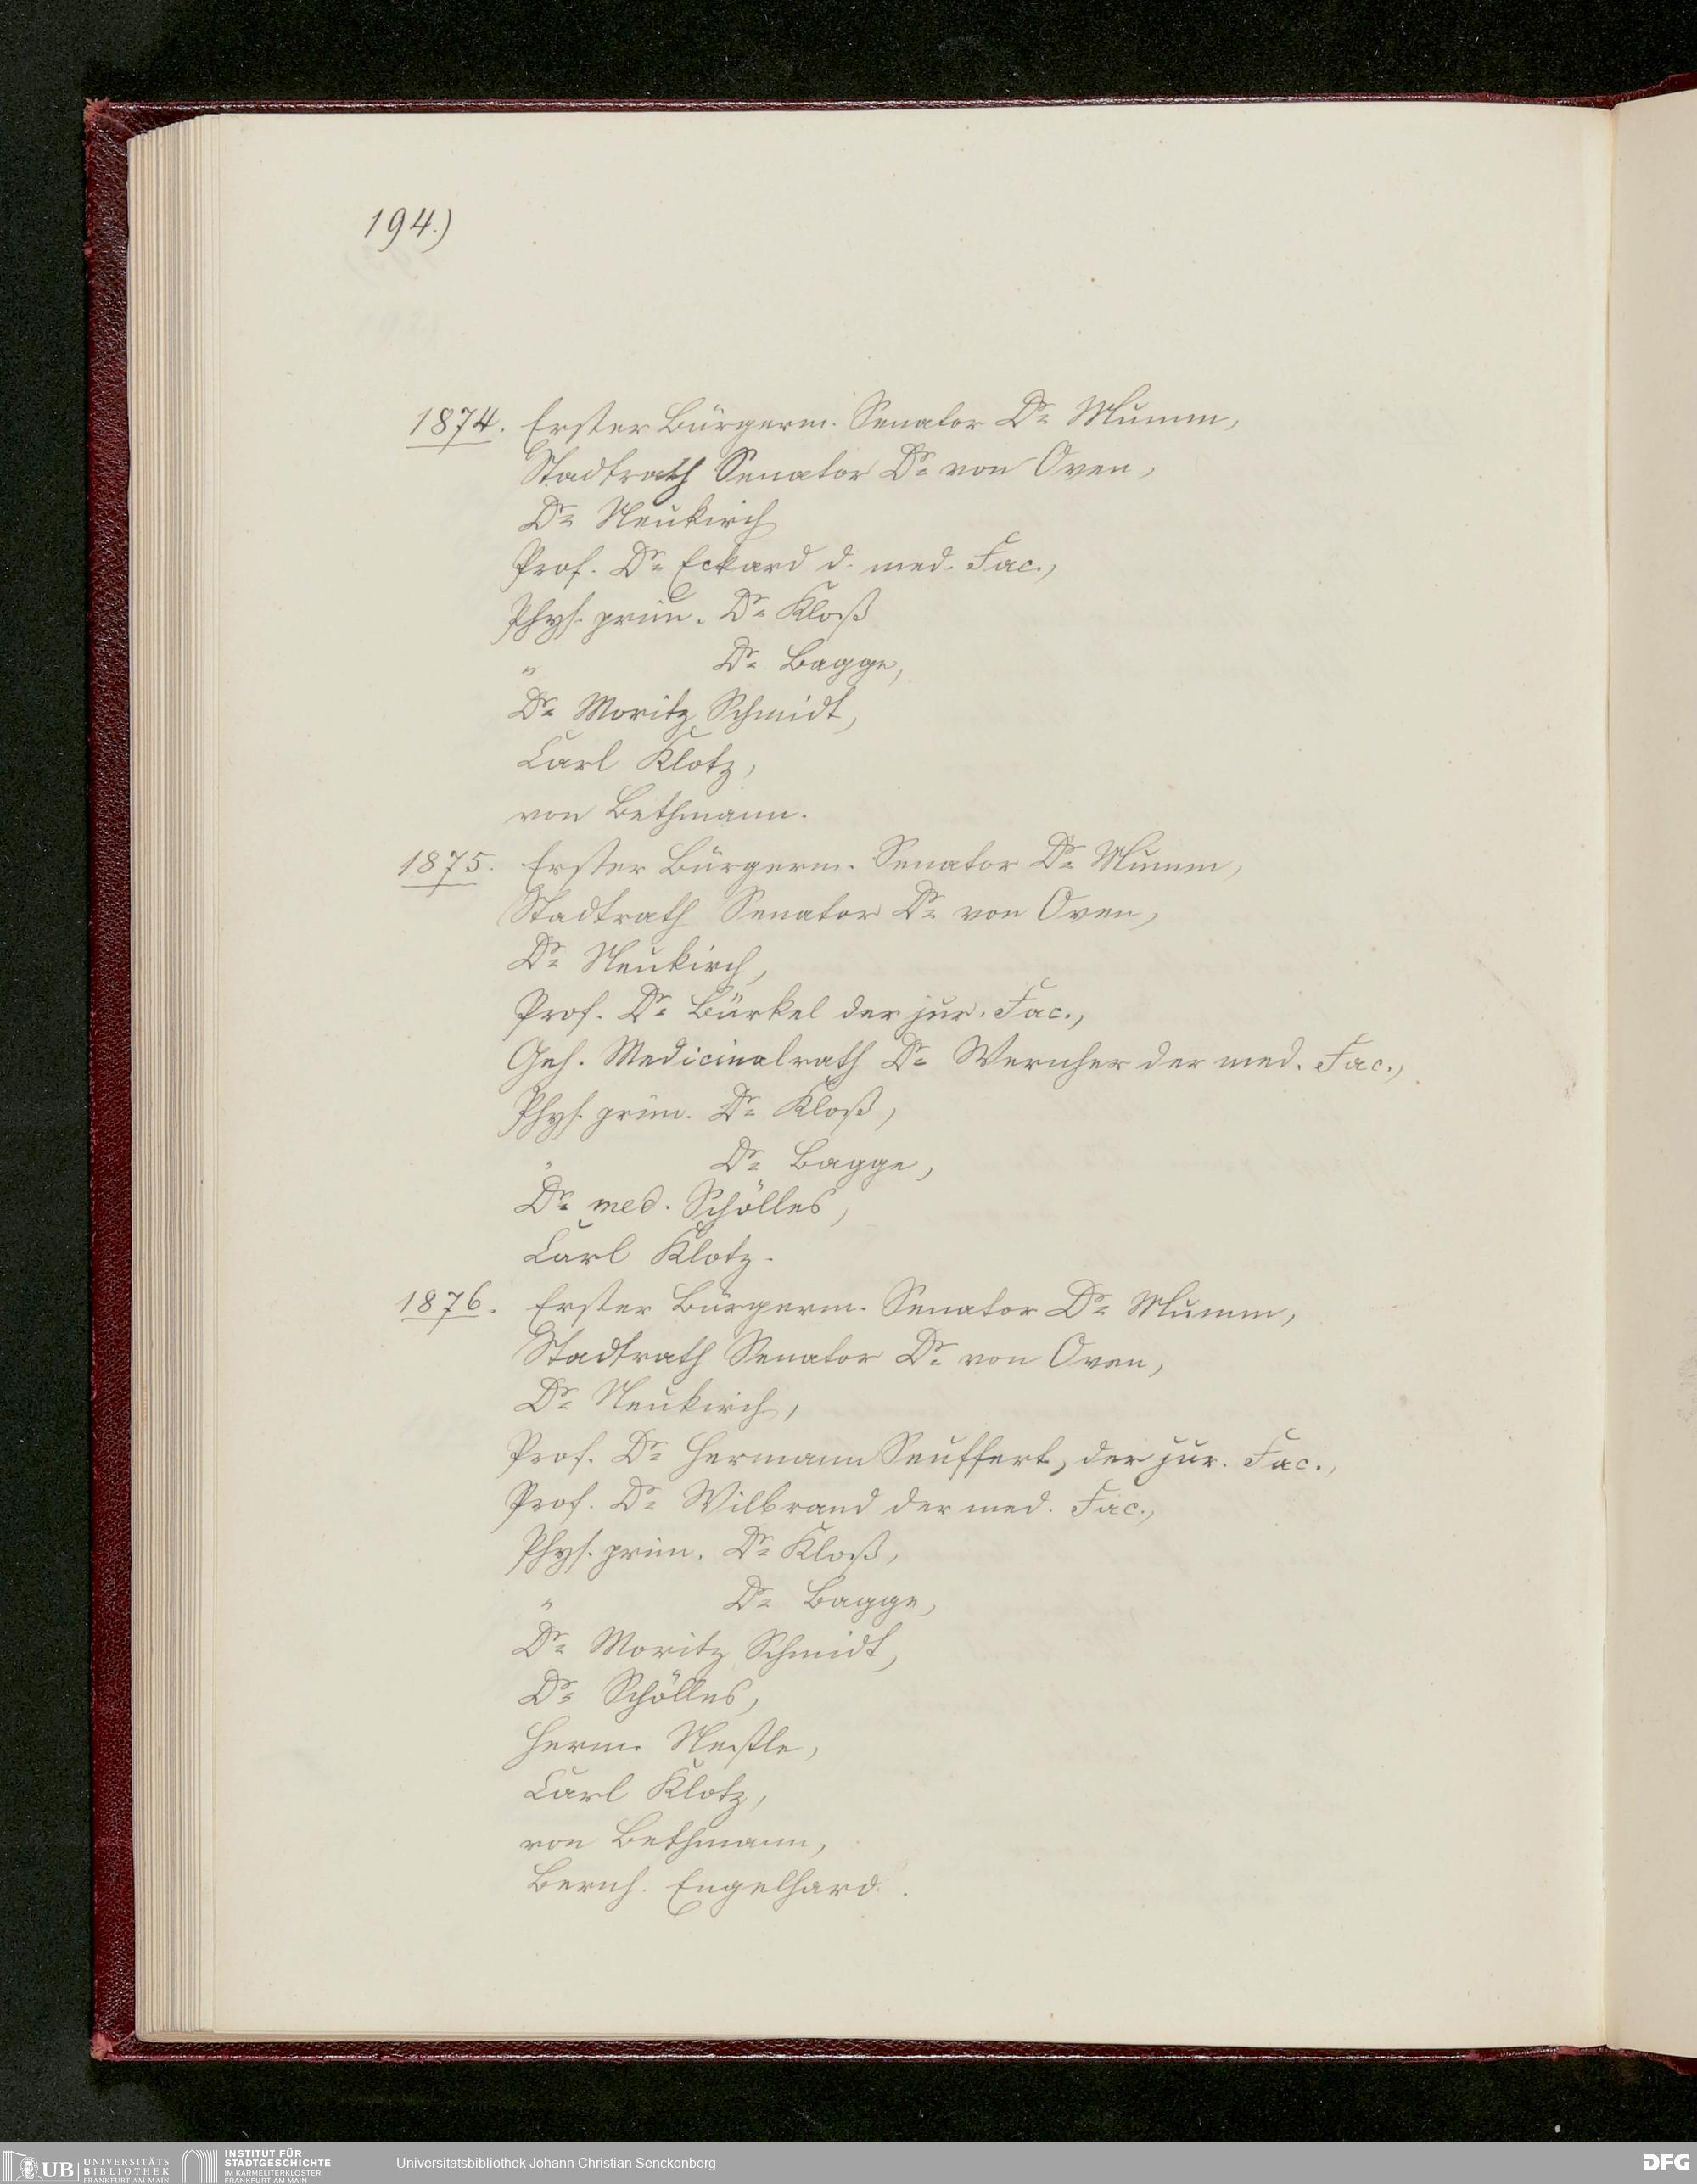 194.)
1874. Erster Bürgerm. Senator Dr. Mumm,
Stadtrath Senator Dr. von Oven,
Dr. Neukirch
Prof. Dr. Eckard d. med. Fac.,
Phys. prim. Dr. Kloß
" Dr. Bagge,
Dr. Moritz Schmidt,
Carl Klotz,
von Bethmann.
1875. Erster Bürgerm. Senator Dr. Mumm,
Stadtrath Senator Dr. von Oven,
Dr. Neukirch,
Prof. Dr. Bürkel der jur. Fac.,
Geh. Medicinalrath Dr. Wernher der med. Fac.,
Phys. prim. Dr. Kloß,
" Dr. Bagge,
Dr. med. Schölles,
Carl Klotz.
1876. Erster Bürgerm. Senator Dr. Mumm,
Stadtrath Senator Dr. von Oven,
Dr. Neukirch,
Prof. Dr. Hermann Seuffert, der jur. Fac.,
Prof. Dr. Wilbrand der med. Fac.,
Phys. prim. Dr. Kloß,
" Dr. Bagge,
Dr. Moritz Schmidt,
Dr. Schölles,
Herm. Nestle,
Carl Klotz,
von Bethmann,
Bernh. Engelhard.
UB UNIVERSITÄTS
BIBLIOTHEK
FRANKFURT AM MAIN
INSTITUT FÜR
STADTGESCHICHTE
IM KARMELITERKLOSTER
FRANKFURT AM MAIN
Universitätsbibliothek Johann Christian Senckenberg
DFG